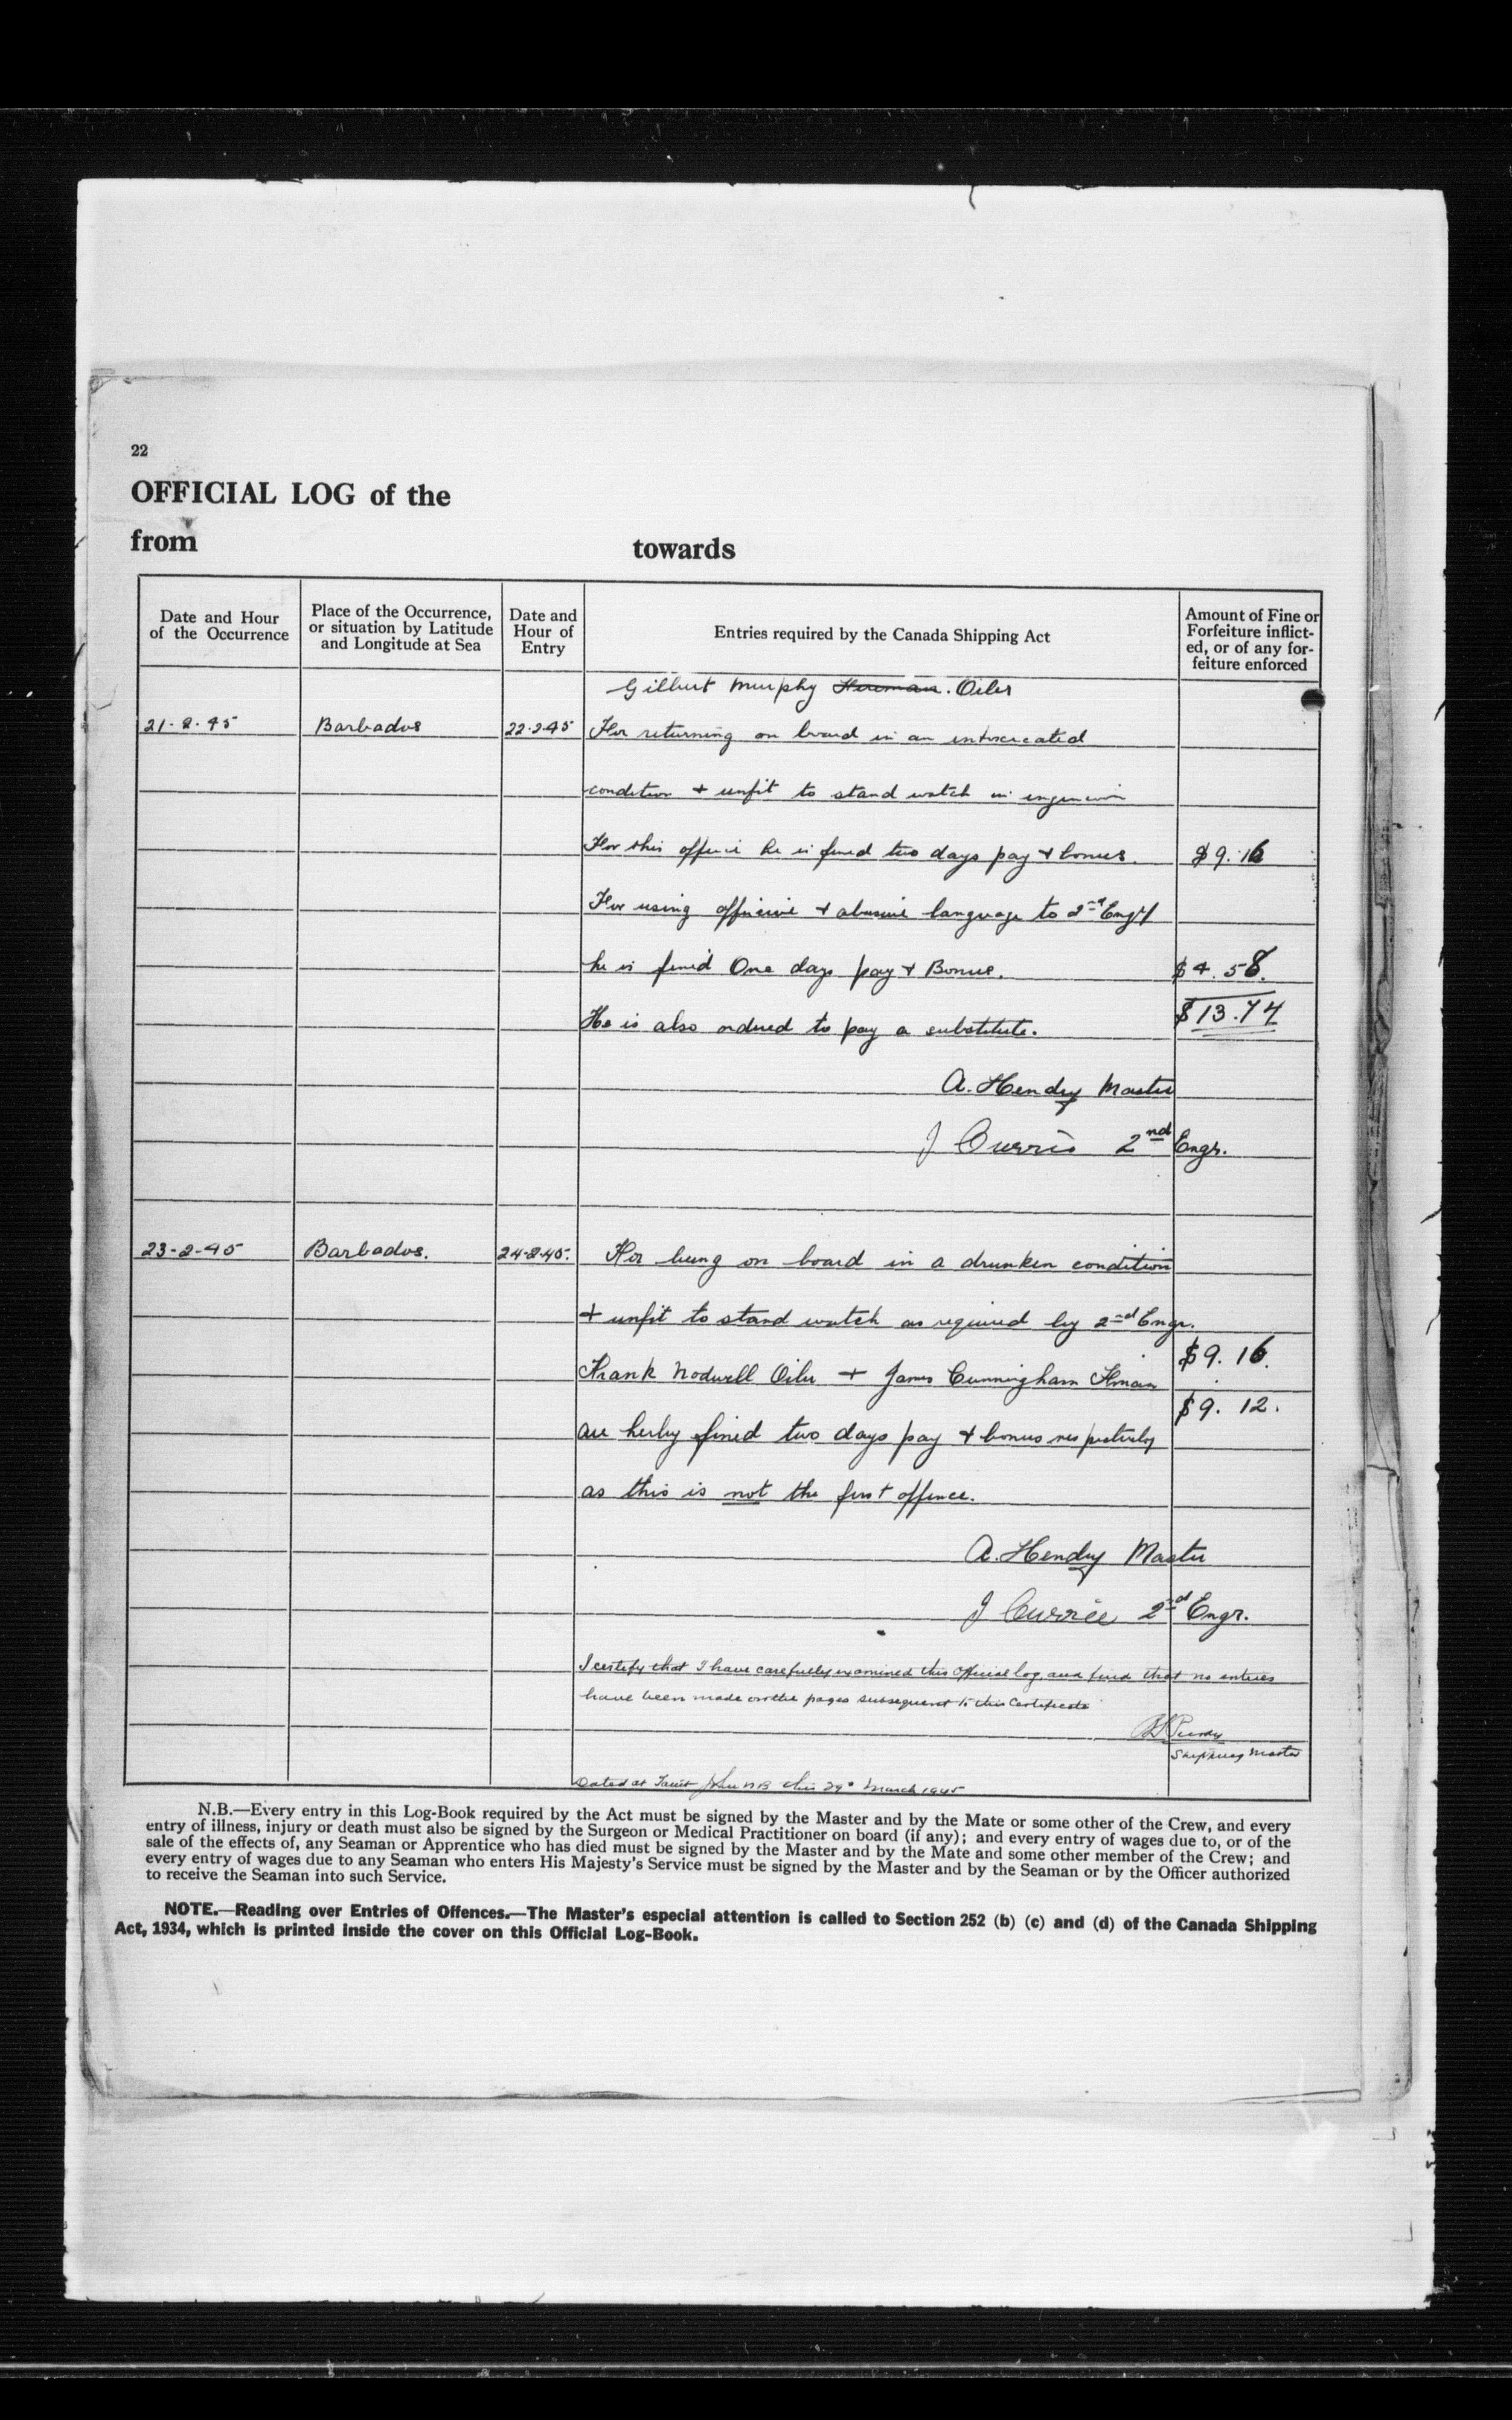 22
OFFICIAL LOG of the
from towards
Date and Hour of the Occurrence
Place of the Occurrence, or situation by Latitude and Longitude at Sea
Date and Hour of Entry
Entries required by the Canada Shipping Act
Amount of Fine or Forfeiture inflicted, or of any forfeiture enforced
Gilbert Murphy Fireman. Oiler
21-2-45 Barbados 22-2-45 For returning on board in an intoxicated
condition + unfit to stand watch in
For this offence he is fined two days pay + bonus. $9.16
For using offensive + abusive language to 2nd Eng'r
he is fined One days pay + Bonus. $4.58.
He is also ordered to pay a substitute. $13.74
A. Hendry Master
J Currie 2nd Engr.
23-2-45 Barbados. 24-2-45. For being on board in a drunken condition
+ unfit to stand watch as required by 2nd Engr.
Frank Nodwell Oiler + James Cunningham Fman $9.16.
are herby fined two days pay + bonus respectively $9.12.
as this is not the first offence.
A. Hendry Master
J Currie 2nd Engr.
I certify that I have carefully examined this official log and find that no entries
have been made on the pages subsequent to this Certificate
Shipping Master
Dated at Saint John NB this 29th March 1945
N.B.—Every entry in this Log-Book required by the Act must be signed by the Master and by the Mate or some other of the Crew, and every
entry of illness, injury or death must also be signed by the Surgeon or Medical Practitioner on board (if any); and every entry of wages due to, or of the
sale of the effects of, any Seaman or Apprentice who has died must be signed by the Master and by the Mate and some other member of the Crew; and
every entry of wages due to any Seaman who enters His Majesty's Service must be signed by the Master and by the Seaman or by the Officer authorized
to receive the Seaman into such Service.
NOTE.—Reading over Entries of Offences.—The Master's especial attention is called to Section 252 (b) (c) and (d) of the Canada Shipping
Act, 1934, which is printed inside the cover on this Official Log-Book.